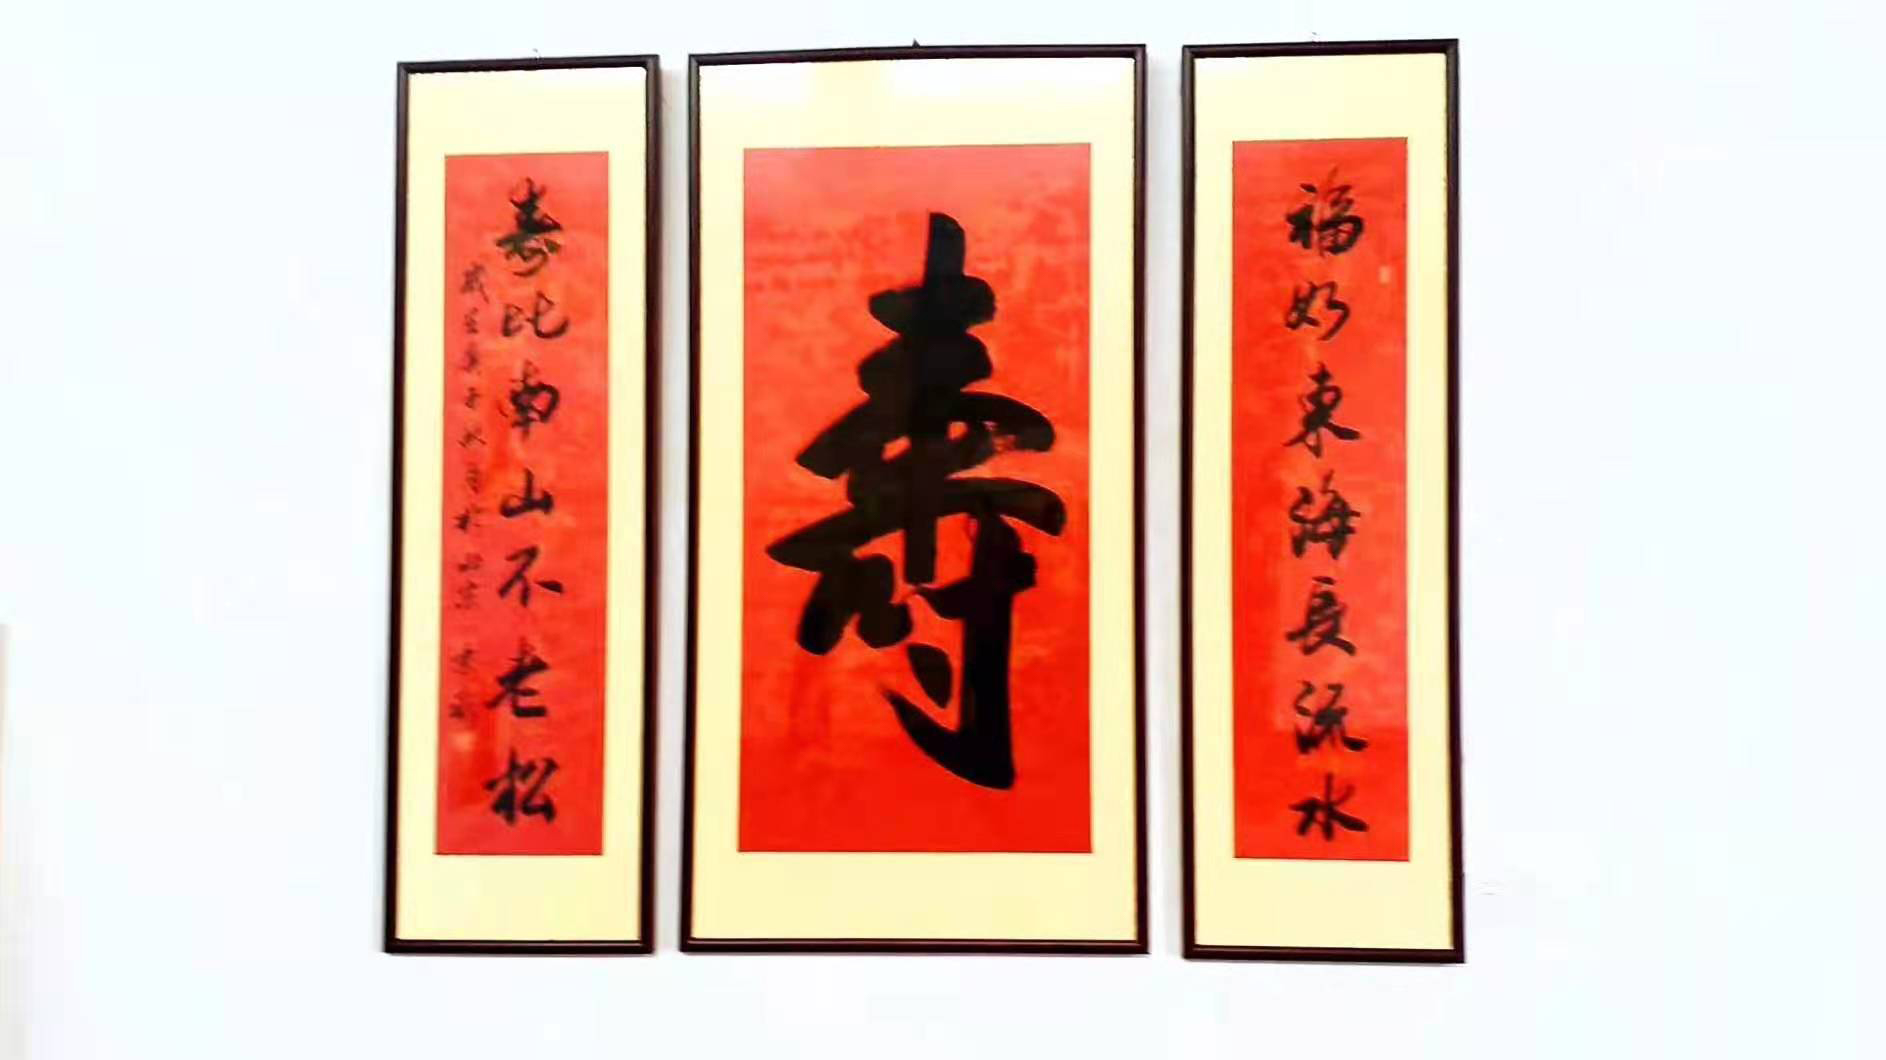 福如東海長流水
寿
寿比南山不老松